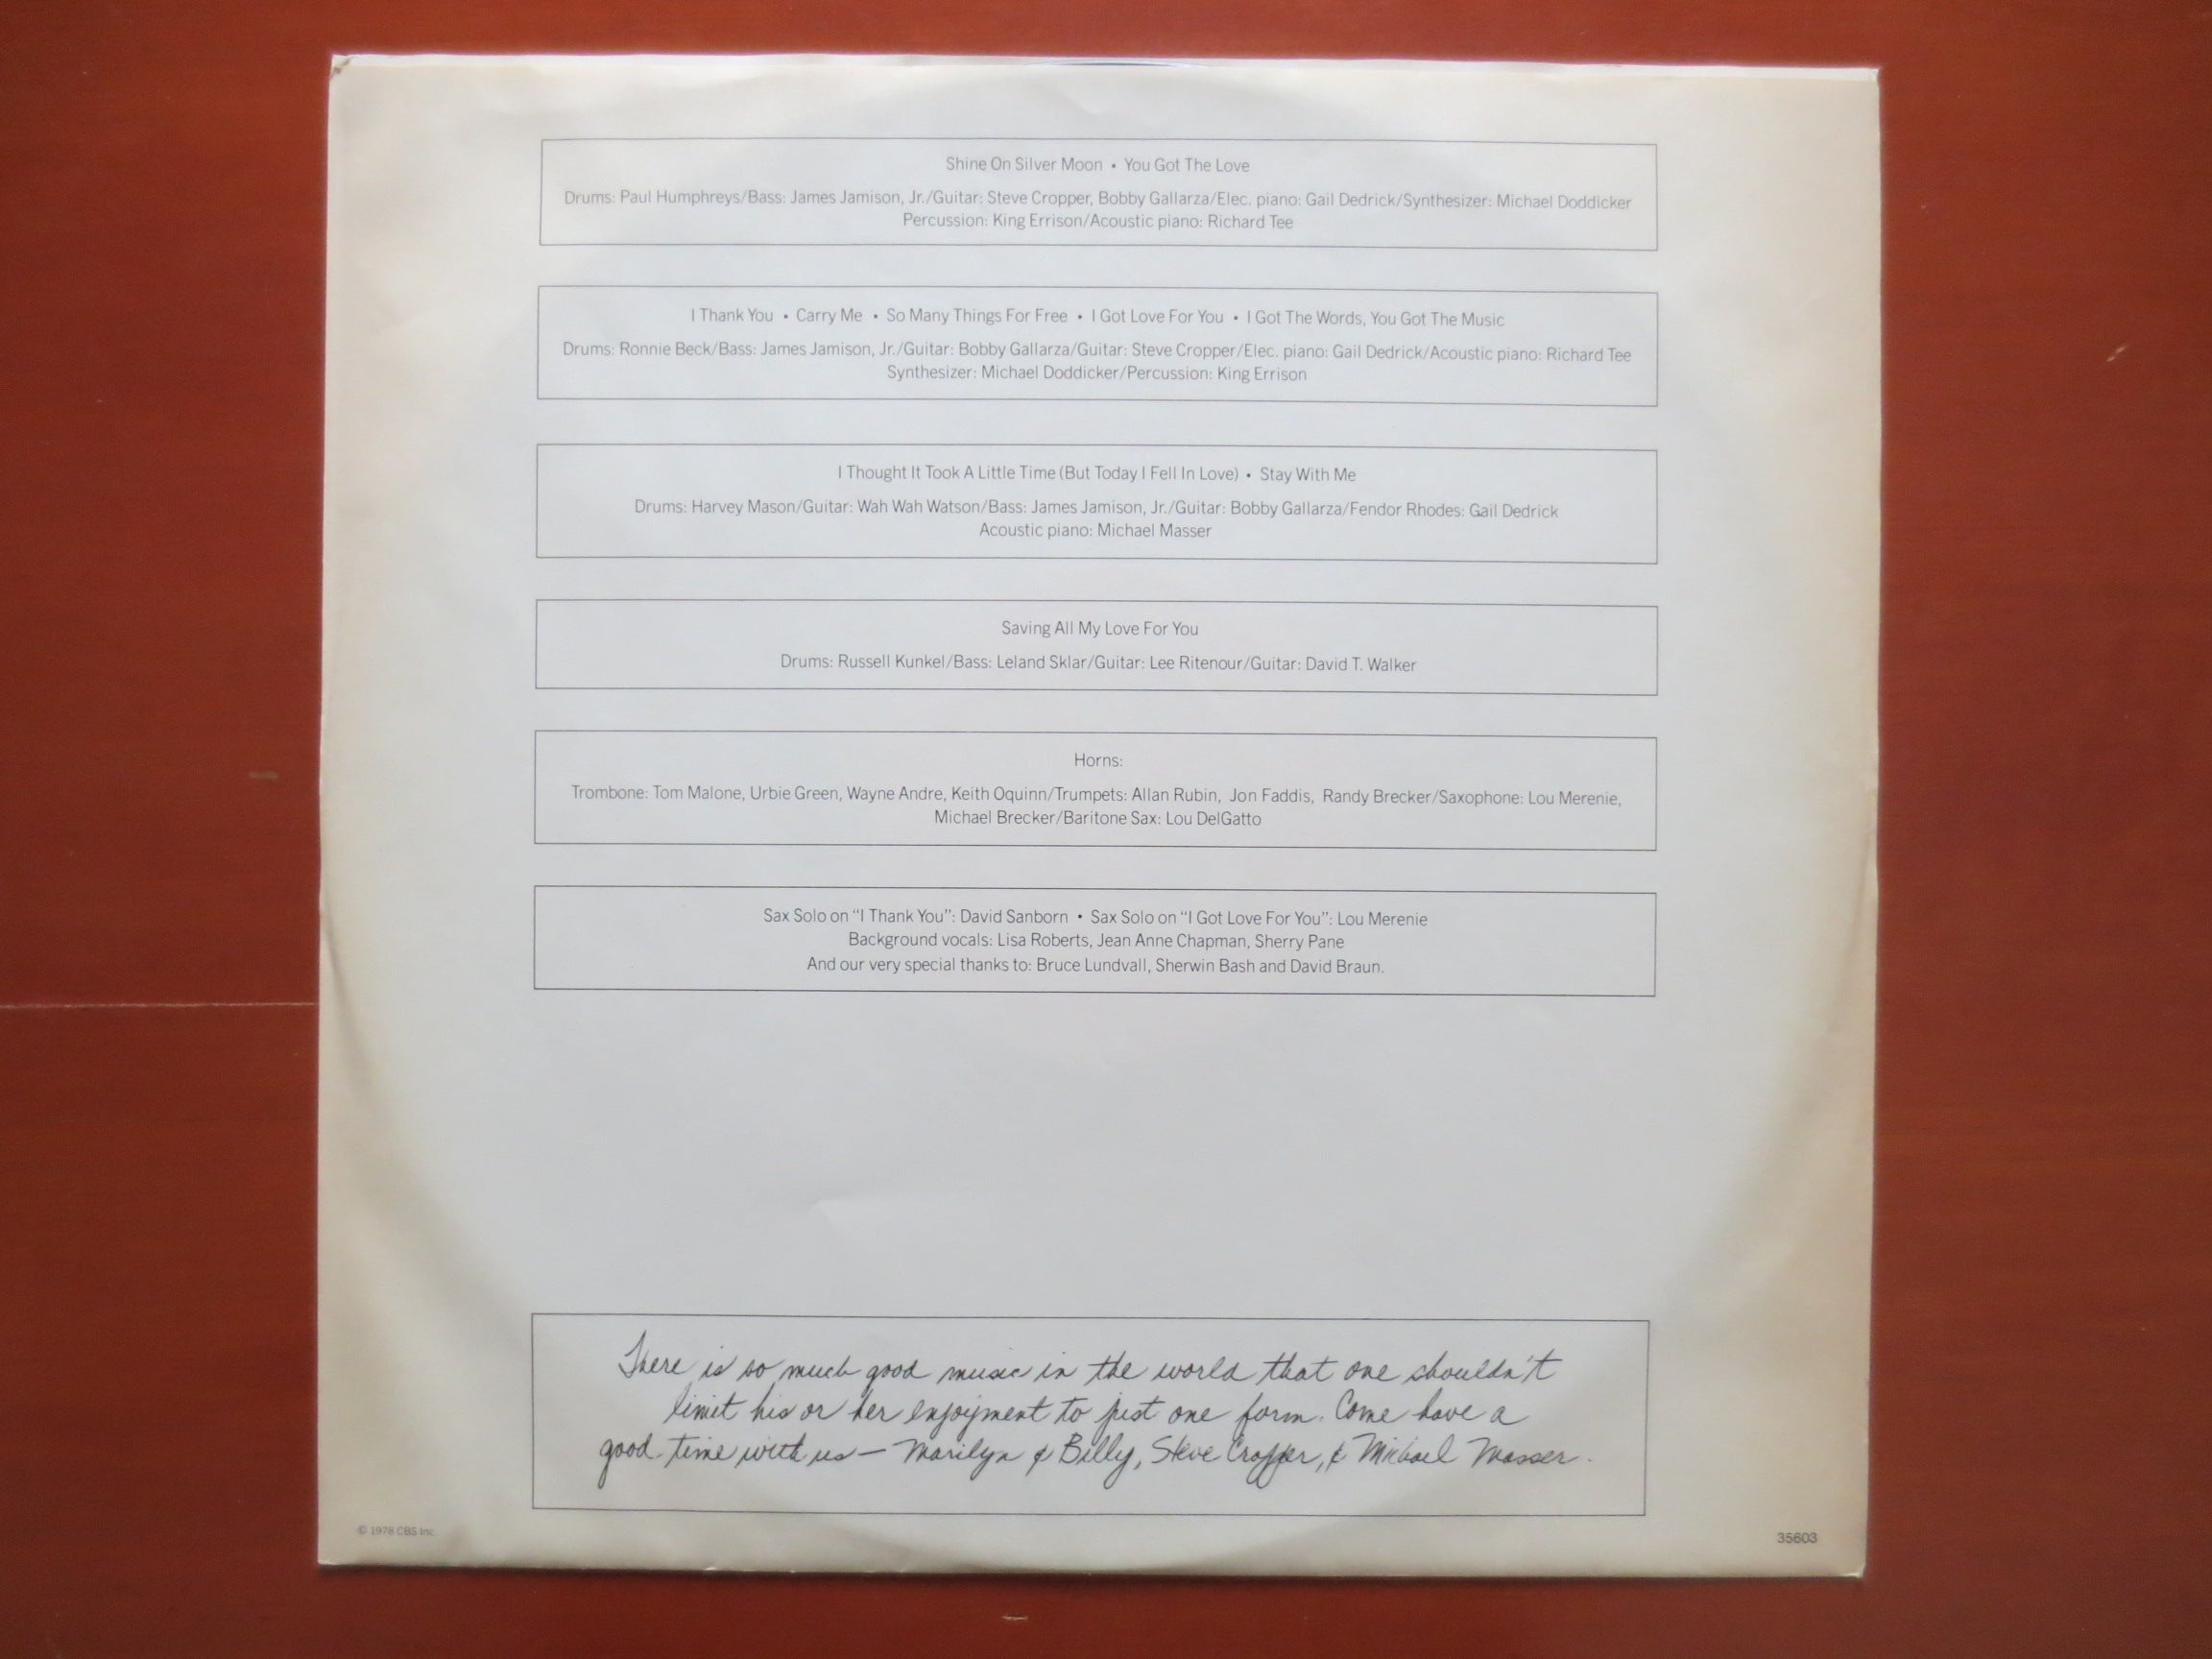 Shine On Silver Moon • You Got The Love
Drums: Paul Humphreys/Bass: James Jamison, Jr./Guitar: Steve Cropper, Bobby Gallarza/Elec. piano: Gail Dedrick/Synthesizer: Michael Doddicker
Percussion: King Errison/Acoustic piano: Richard Tee
I Thank You • Carry Me • So Many Things For Free • I Got Love For You • I Got The Words, You Got The Music
Drums: Ronnie Beck/Bass: James Jamison, Jr./Guitar: Bobby Gallarza/Guitar: Steve Cropper/Elec. piano: Gail Dedrick/Acoustic piano: Richard Tee
Synthesizer: Michael Doddicker/Percussion: King Errison
I Thought It Took A Little Time (But Today I Fell In Love) • Stay With Me
Drums: Harvey Mason/Guitar: Wah Wah Watson/Bass: James Jamison, Jr./Guitar: Bobby Gallarza/Fendor Rhodes: Gail Dedrick
Acoustic piano: Michael Masser
Saving All My Love For You
Drums: Russell Kunkel/Bass: Leland Sklar/Guitar: Lee Ritenour/Guitar: David T. Walker
Horns:
Trombone: Tom Malone, Urbie Green, Wayne Andre, Keith Oquinn/Trumpets: Allan Rubin, Jon Faddis, Randy Brecker/Saxophone: Lou Merenie,
Michael Brecker/Baritone Sax: Lou DelGatto
Sax Solo on “I Thank You”: David Sanborn • Sax Solo on “I Got Love For You”: Lou Merenie
Background vocals: Lisa Roberts, Jean Anne Chapman, Sherry Pane
And our very special thanks to: Bruce Lundvall, Sherwin Bash and David Braun.
There is so much good music in the world that one shouldn't
limit his or her enjoyment to just one form. Come have a
good time with us — Marilyn & Billy, Steve Cropper, & Michael Masser.
© 1978 CBS Inc.
35603